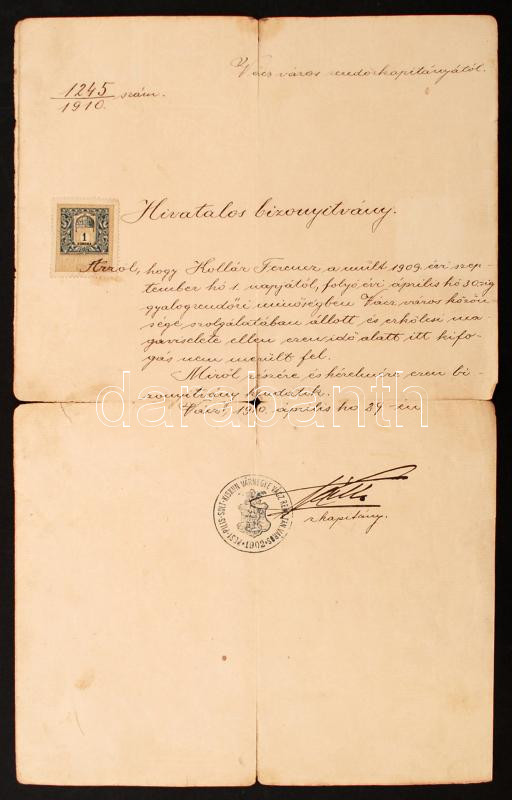 Vácz város rendőrkapitányától.
1245
1910. szám.
Hivatalos bizonyitvány.
1
Arról, hogy Kollár Ferencz a múlt 1909. évi szep-
tember hó 1. napjától, folyó évi április hó 30-ig
gyalogrendőri minőségben Vácz város közön-
sége szolgálatában állott, és erkölcsi ma-
gaviselete ellen ezen idő alatt itt kifo-
gás nem merült fel.
Miről részére és kérelmére ezen bi-
zonyitvány kiadatik.
darabanth
Vácz, 1910. április hó 29-én
r. kapitány.
PEST-PILIS-SOLT-KISKUN VÁRMEGYE VÁCZ REND. TAN. VÁROS 1902